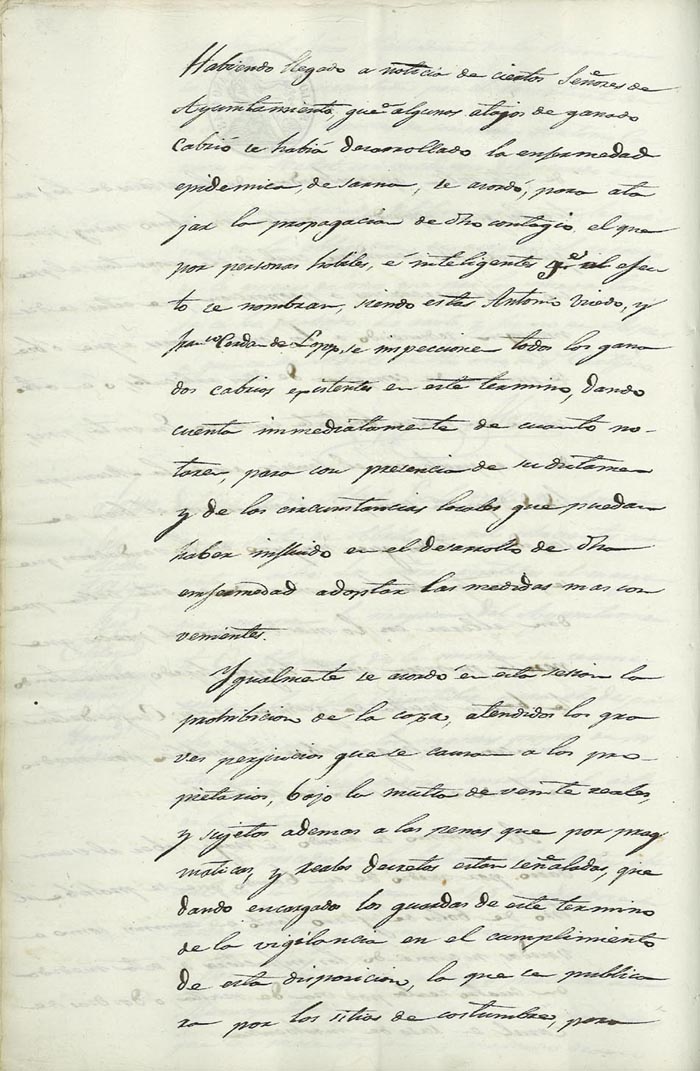 Habiendo llegado a noticia de ciertos Señores de
Ayuntamiento, que algunos atajos de ganado
Cabrió se habia desarrollado la enfermedad
epidemica, de sarna, se acordó, para ata
jar la propagacion de dho contagio, el que
por personas habiles, é inteligentes qe al efec
to se nombran, siendo estas Antonio Oviedo, y
Franco Cerdan de Lopp, se inspeccionen todos los gana
dos cabrios existentes en este termino, dando
cuenta immediatamente de cuanto no-
taren, para con presencia de su dictamen
y de las circunstancias locales que puedan
haber influido en el desarrollo de dha
enfermedad adoptar las medidas mas con
venientes.
Ygualmente se acordó en esta sesion la
prohibicion de la caza, atendidos los gra
ves perjuicios que se causan a los pro-
pietarios, bajo la multa de veinte reales,
y sujetos ademas a las penas que por prag
maticas, y reales decretos estan señaladas, que
dando encargados los guardas de este termino
de la vigilancia en el cumplimiento
de esta disposicion, la que se publica
ra por los sitios de costumbre, para